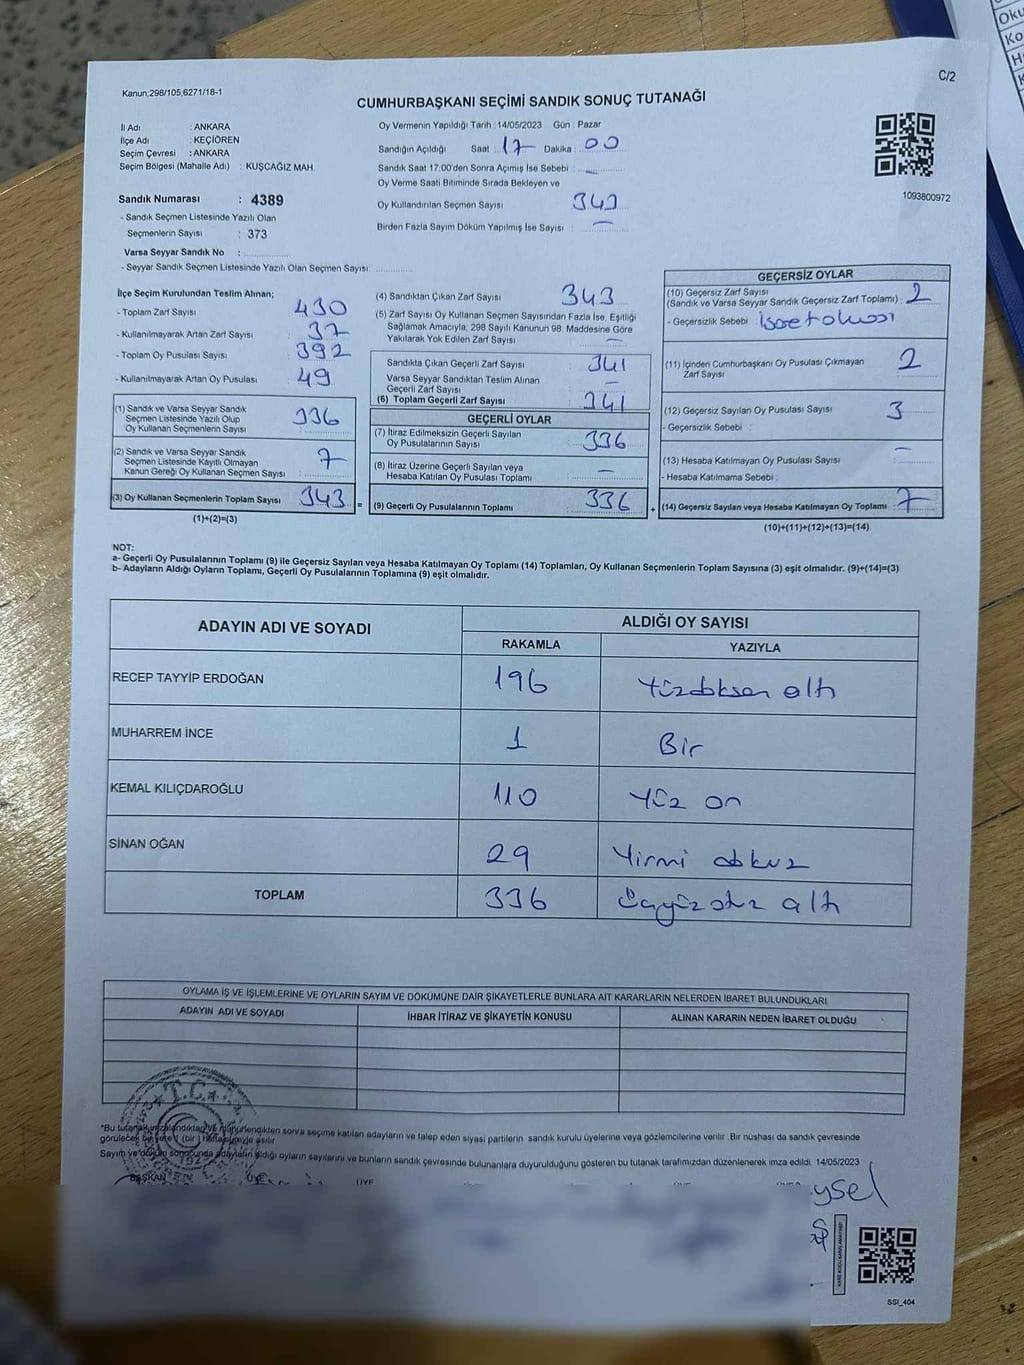 Kanun;298/105,6271/18-1
C/2
CUMHURBAŞKANI SEÇİMİ SANDIK SONUÇ TUTANAĞI
İl Adı : ANKARA
İlçe Adı : KEÇİÖREN
Seçim Çevresi : ANKARA
Seçim Bölgesi (Mahalle Adı) : KUŞCAĞIZ MAH.
Sandık Numarası : 4389
- Sandık Seçmen Listesinde Yazılı Olan
Seçmenlerin Sayısı : 373
Varsa Seyyar Sandık No :
- Seyyar Sandık Seçmen Listesinde Yazılı Olan Seçmen Sayısı:
Oy Vermenin Yapıldığı Tarih : 14/05/2023 Gün : Pazar
Sandığın Açıldığı Saat : 17 Dakika : 00
Sandık Saat 17:00'den Sonra Açımış İse Sebebi : —
Oy Verme Saati Bitiminde Sırada Bekleyen ve
Oy Kullandırılan Seçmen Sayısı 343
Birden Fazla Sayım Döküm Yapılmış İse Sayısı : —
1093800972
İlçe Seçim Kurulundan Teslim Alınan;
- Toplam Zarf Sayısı : 430
- Kullanılmayarak Artan Zarf Sayısı : 37
- Toplam Oy Pusulası Sayısı : 392
- Kullanılmayarak Artan Oy Pusulası : 49
(1) Sandık ve Varsa Seyyar Sandık
Seçmen Listesinde Yazılı Olup
Oy Kullanan Seçmenlerin Sayısı : 336
(2) Sandık ve Varsa Seyyar Sandık
Seçmen Listesinde Kayıtlı Olmayan
Kanun Gereği Oy Kullanan Seçmen Sayısı : 7
(3) Oy Kullanan Seçmenlerin Toplam Sayısı : 343 =
(1)+(2)=(3)
(4) Sandıktan Çıkan Zarf Sayısı 343
(5) Zarf Sayısı Oy Kullanan Seçmen Sayısından Fazla İse, Eşitliği
Sağlamak Amacıyla, 298 Sayılı Kanunun 98. Maddesine Göre
Yakılarak Yok Edilen Zarf Sayısı : —
Sandıkta Çıkan Geçerli Zarf Sayısı : 341
Varsa Seyyar Sandıktan Teslim Alınan
Geçerli Zarf Sayısı : —
(6) Toplam Geçerli Zarf Sayısı : 341
GEÇERLİ OYLAR
(7) İtiraz Edilmeksizin Geçerli Sayılan
Oy Pusulalarının Sayısı : 336
(8) İtiraz Üzerine Geçerli Sayılan veya
Hesaba Katılan Oy Pusulası Toplamı : —
(9) Geçerli Oy Pusulalarının Toplamı : 336 +
GEÇERSİZ OYLAR
(10) Geçersiz Zarf Sayısı
(Sandık ve Varsa Seyyar Sandık Geçersiz Zarf Toplamı) : 2
- Geçersizlik Sebebi :
(11) İçinden Cumhurbaşkanı Oy Pusulası Çıkmayan
Zarf Sayısı : 2
(12) Geçersiz Sayılan Oy Pusulası Sayısı : 3
- Geçersizlik Sebebi :
(13) Hesaba Katılmayan Oy Pusulası Sayısı : —
- Hesaba Katılmama Sebebi :
(14) Geçersiz Sayılan veya Hesaba Katılmayan Oy Toplamı : 7
(10)+(11)+(12)+(13)=(14)
NOT:
a- Geçerli Oy Pusulalarının Toplamı (9) ile Geçersiz Sayılan veya Hesaba Katılmayan Oy Toplamı (14) Toplamları, Oy Kullanan Seçmenlerin Toplam Sayısına (3) eşit olmalıdır. (9)+(14)=(3)
b- Adayların Aldığı Oyların Toplamı, Geçerli Oy Pusulalarının Toplamına (9) eşit olmalıdır.
ADAYIN ADI VE SOYADI ALDIĞI OY SAYISI
RAKAMLA YAZIYLA
RECEP TAYYİP ERDOĞAN 196 Yüzdoksan altı
MUHARREM İNCE 1 Bir
KEMAL KILIÇDAROĞLU 110 Yüz on
SİNAN OĞAN 29 Yirmi dokuz
TOPLAM 336 üçyüzotuz altı
OYLAMA İŞ VE İŞLEMLERİNE VE OYLARIN SAYIM VE DÖKÜMÜNE DAİR ŞİKAYETLERLE BUNLARA AİT KARARLARIN NELERDEN İBARET BULUNDUKLARI
ADAYIN ADI VE SOYADI İHBAR İTİRAZ VE ŞİKAYETİN KONUSU ALINAN KARARIN NEDEN İBARET OLDUĞU
T.C.
*Bu tutanak sonra seçime katılan adayların ve talep eden siyasi partilerin sandık kurulu üyelerine veya gözlemcilerine verilir. Bir nüshası da sandık çevresinde
görülecek bir yere 1 (bir)
Sayım ve döküm sonucunda adayların aldığı oyların sayılarını ve bunların sandık çevresinde bulunanlara duyurulduğunu gösteren bu tutanak tarafımızdan düzenlenerek imza edildi. 14/05/2023
BAŞKAN ÜYE ÜYE
SSI_404